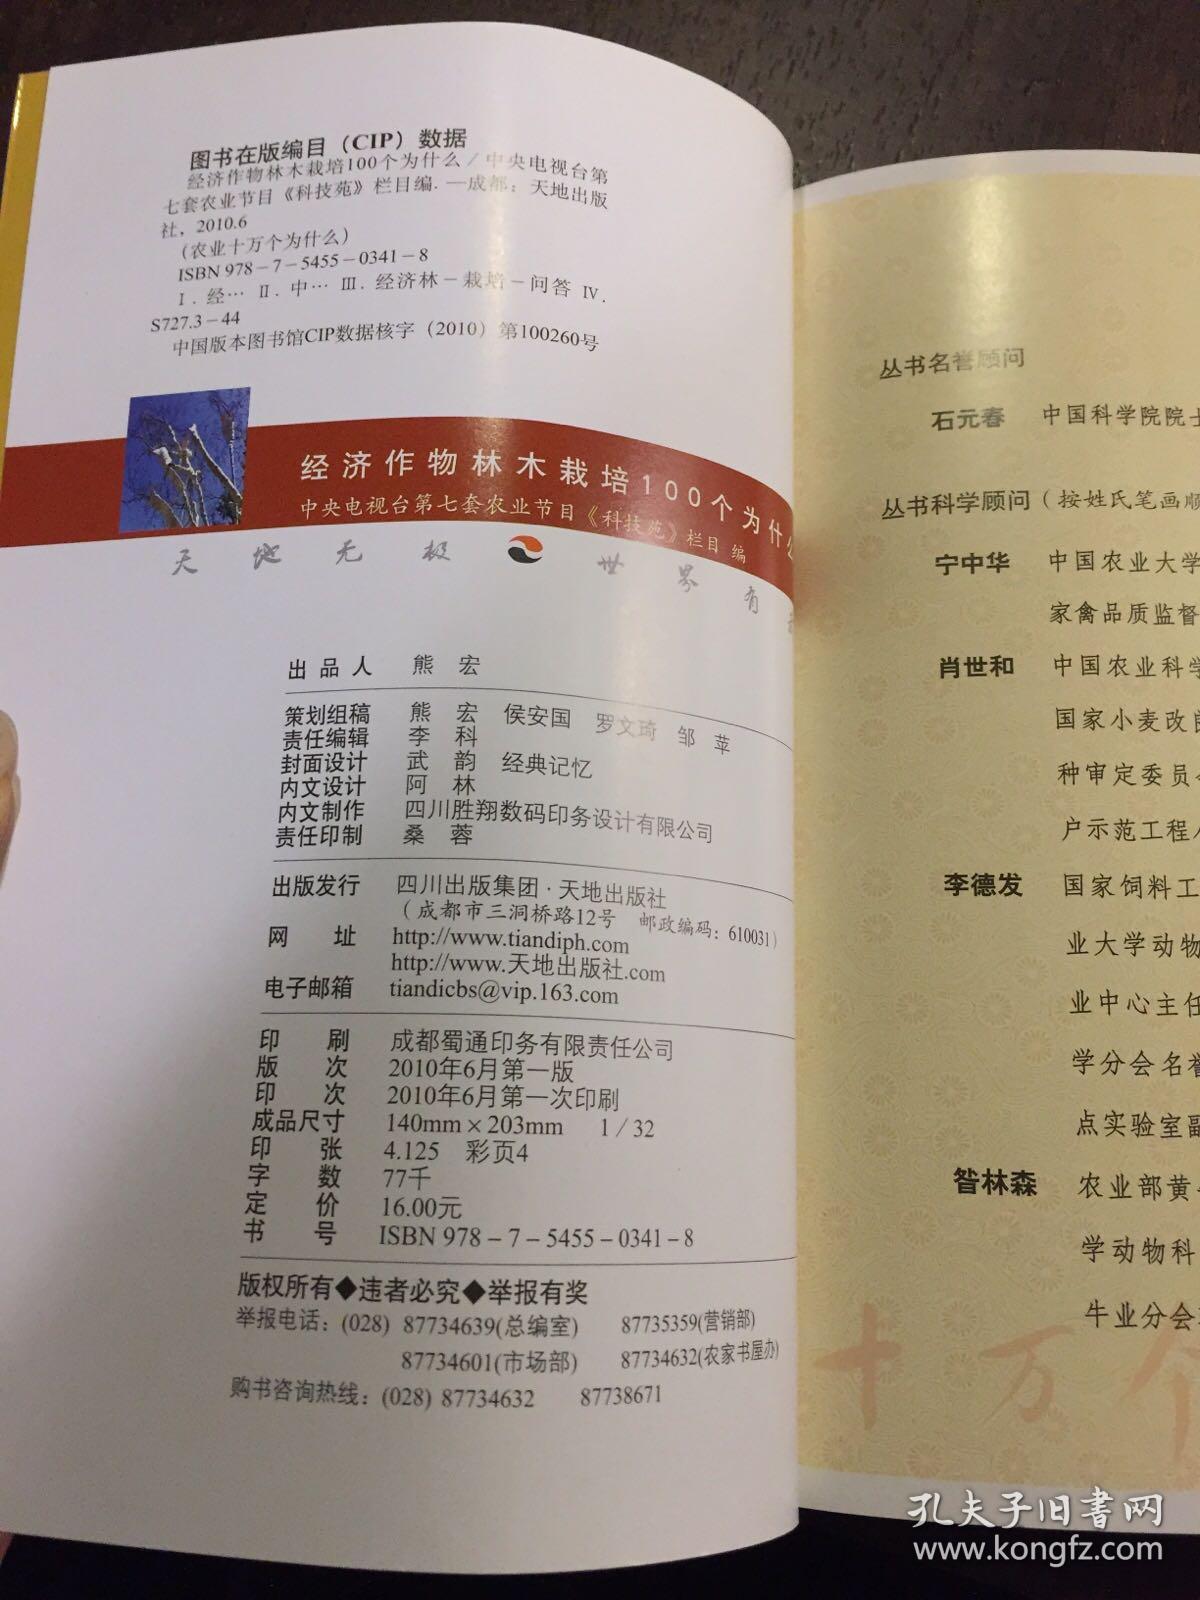 图书在版编目（CIP）数据
经济作物林木栽培100个为什么／中央电视台第
七套农业节目《科技苑》栏目编. —成都：天地出版
社，2010.6
（农业十万个为什么）
ISBN 978－7－5455－0341－8
Ⅰ. 经… Ⅱ. 中… Ⅲ. 经济林－栽培－问答 Ⅳ.
S727.3－44
中国版本图书馆CIP数据核字（2010）第100260号
经济作物林木栽培100个为什么
中央电视台第七套农业节目《科技苑》栏目 编
天地无极 世界有
出品人 熊 宏
策划组稿 熊 宏 侯安国 罗文琦 邹 苹
责任编辑 李 科
封面设计 武 韵 经典记忆
内文设计 阿 林
内文制作 四川胜翔数码印务设计有限公司
责任印制 桑 蓉
出版发行 四川出版集团·天地出版社
（成都市三洞桥路12号 邮政编码：610031）
网 址 http://www.tiandiph.com
http://www.天地出版社.com
电子邮箱 tiandicbs@vip.163.com
印 刷 成都蜀通印务有限责任公司
版 次 2010年6月第一版
印 次 2010年6月第一次印刷
成品尺寸 140mm×203mm 1/32
印 张 4.125 彩页4
字 数 77千
定 价 16.00元
书 号 ISBN 978－7－5455－0341－8
版权所有◆违者必究◆举报有奖
举报电话：(028) 87734639(总编室) 87735359(营销部)
87734601(市场部) 87734632(农家书屋办)
购书咨询热线：(028) 87734632 87738671
丛书名誉顾问
石元春 中国科学院院士
丛书科学顾问（按姓氏笔画顺
宁中华 中国农业大学
家禽品质监督
肖世和 中国农业科学
国家小麦改良
种审定委员会
户示范工程
李德发 国家饲料工
业大学动物
业中心主任
学分会名誉
点实验室副
昝林森 农业部黄
学动物科
牛业分会
十万个
孔夫子旧书网
www.kongfz.com